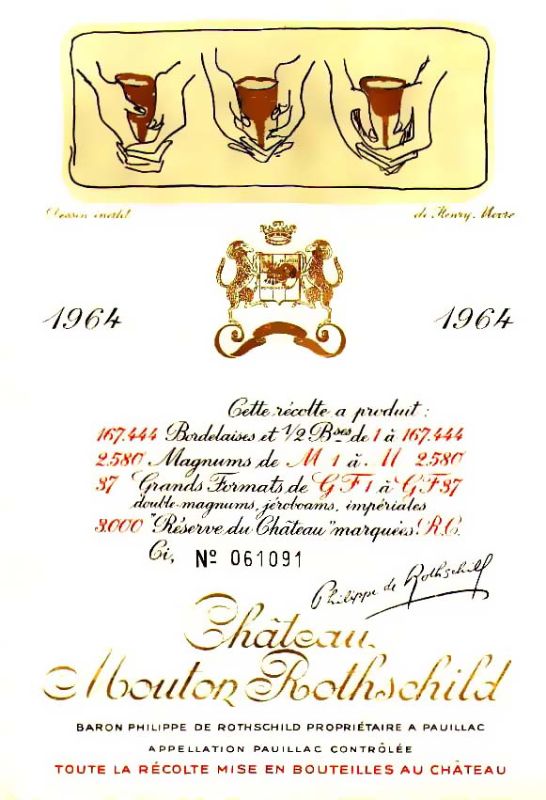 Dessin inédit de Henry Moore
1964 1964
Cette récolte a produit :
167.444 Bordelaises et 1/2 Bses de 1 à 167.444
2.580 Magnums de M 1 à M 2.580
37 Grands Formats de GF 1 à GF 37
double-magnums, jéroboams, impériales
3.000 "Réserve du Château" marquées R.C.
Ci, Nº 061091
Philippe de Rothschild
Château
Mouton Rothschild
BARON PHILIPPE DE ROTHSCHILD PROPRIÉTAIRE A PAUILLAC
APPELLATION PAUILLAC CONTRÔLÉE
TOUTE LA RÉCOLTE MISE EN BOUTEILLES AU CHÂTEAU